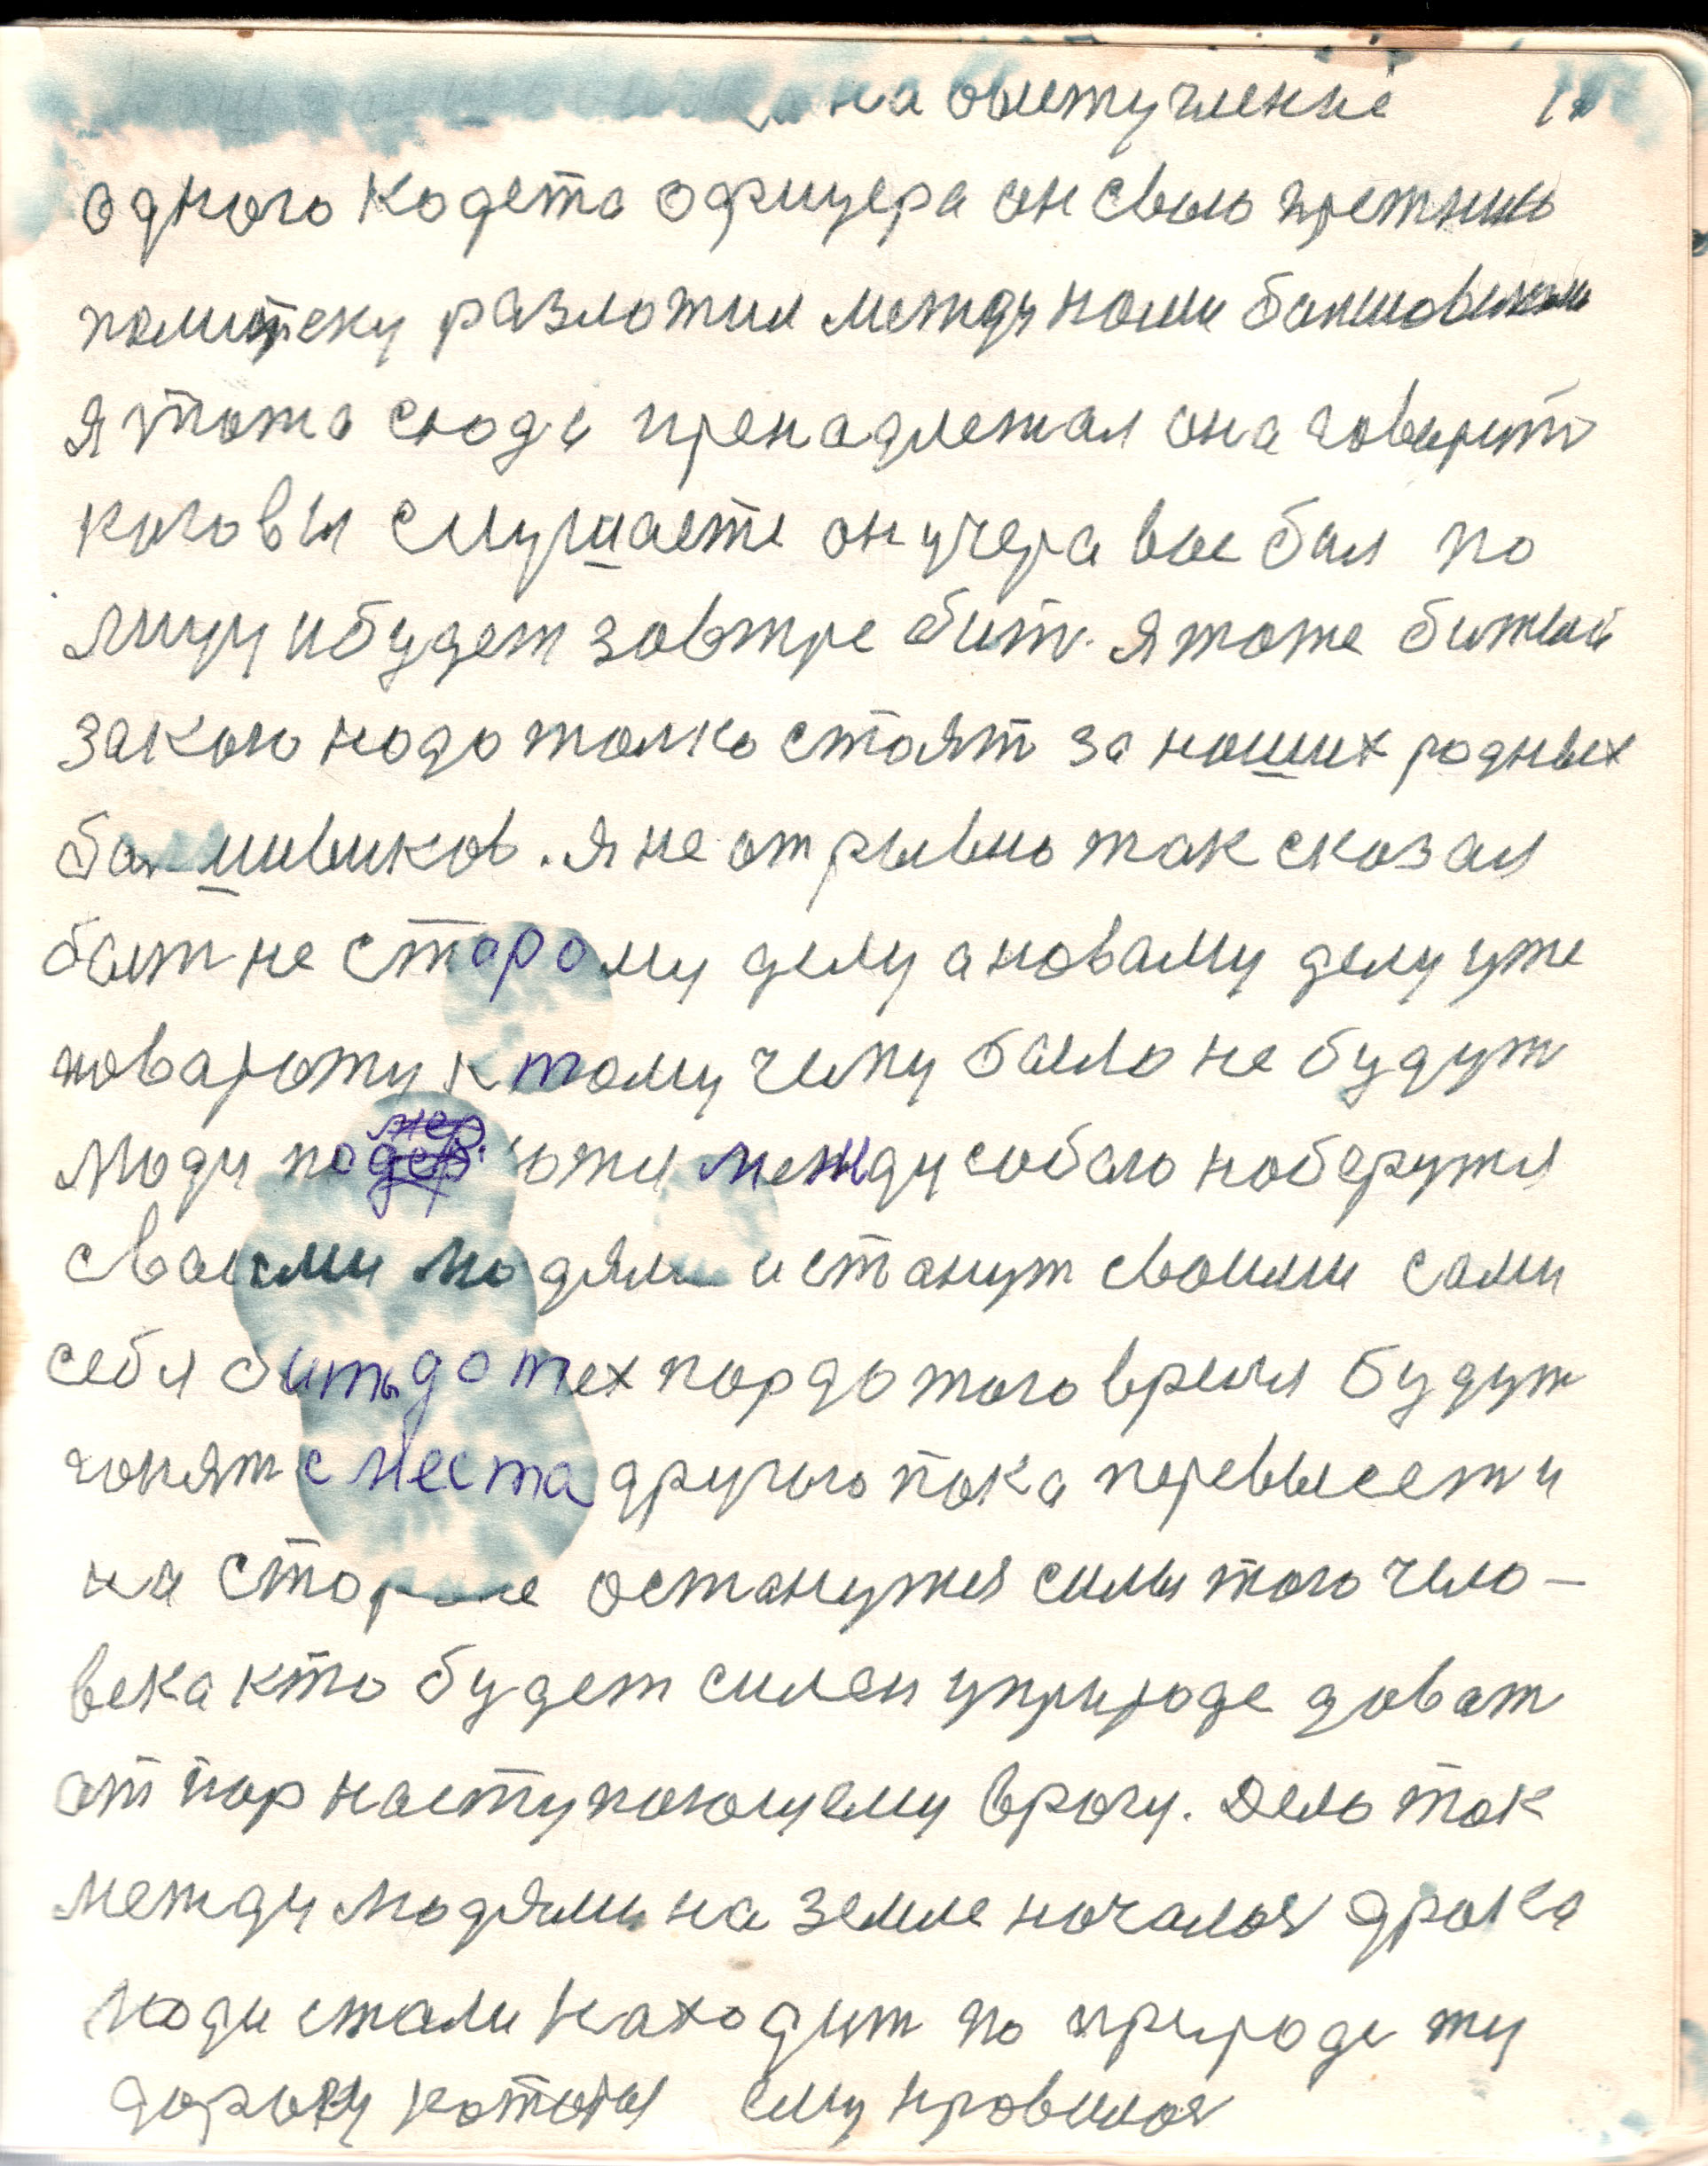 на выступление
одного кадета офицера он свою прежнию
политеку разложил между нами
я тожа сюда пренадлежал она говорит
кого вы слушаете он учера вас бил по
лицу и будет завтре бит. я тоже битый
закон надо толко стоят за наших родных
болшивиков. я не отрывно так сказал
быт не старому делу а новаму делу уже
повароту к тому чему было не будут
люди подер жер ютя между собою наберутя
сваими людями и станут своими сами
себя бить до тех пор до того время будут
гонят с места другого пока перевысети
на стороне останутя силы того чело-
века кто будет силен уприроде доват
отпор наступающему врагу. Дело так
между людями на земле началоя драка
люди стали находит по природе ту
дорогу котоя ему нровилоя